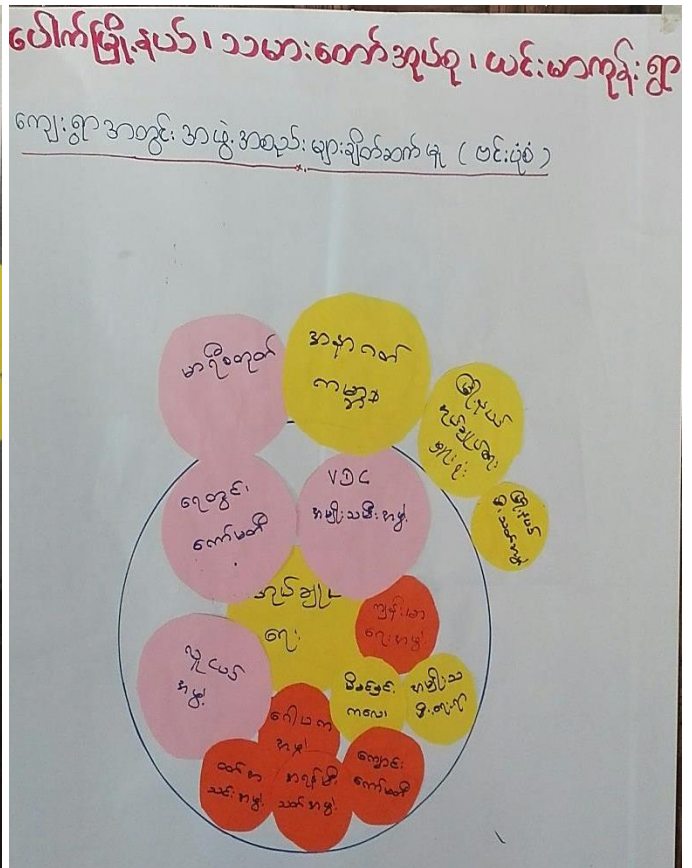 ပေါက်မြို့နယ်၊ သမားတော်အုပ်စု၊ ယင်းမာကုန်းရွာ
ကျေးရွာအတွင်း အဖွဲ့အစည်းများချိတ်ဆက်မှု (ဗင်းပုံစံ)
မာရီစတုတ်
အနာဂတ်
ကမ္ဘာ
မြို့နယ်
အုပ်ချုပ်ရေး
ရုံး
မြို့နယ်
ရေတွင်း
ကော်မတီ
VDC
အမျိုးသမီးအဖွဲ့
အုပ်ချုပ်
ရေး
ကျန်းမာ
ရေးအဖွဲ့
လူငယ်
အဖွဲ့
မိခင်နှင့်
ကလေး
အမျိုးသ
မီးရေးရာ
ဂေါပက
အဖွဲ့
အရန်မီး
သတ်အဖွဲ့
ကျောင်း
ကော်မတီ